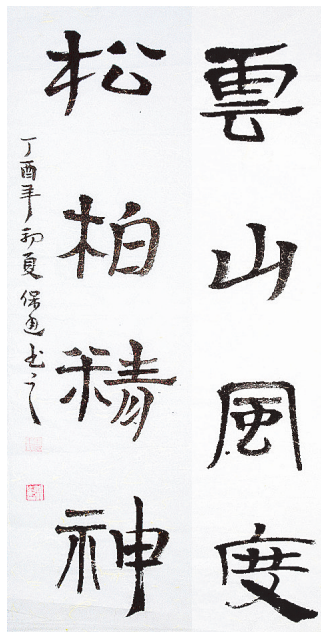 雲山風度
松柏精神
丁酉年初夏保通书之